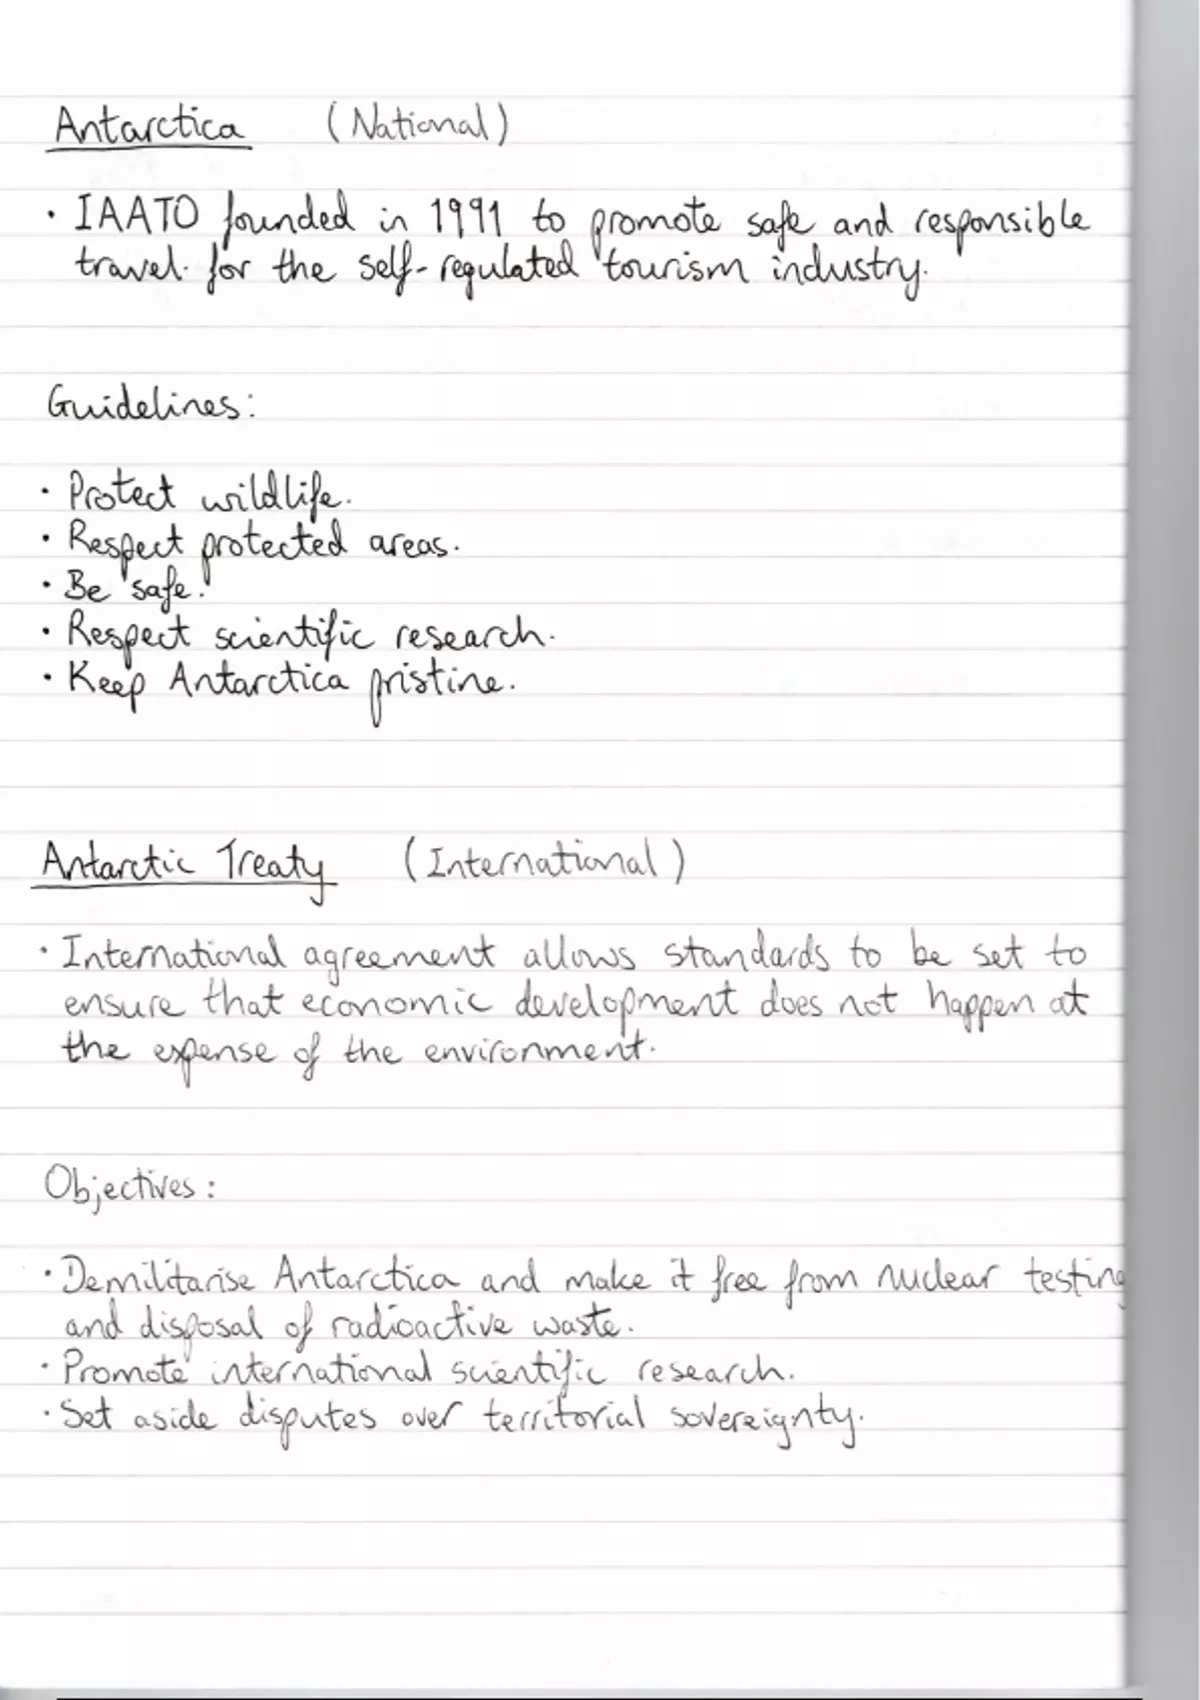 Antarctica (National)
• IAATO founded in 1991 to promote safe and responsible
travel. for the self-regulated tourism industry.
Guidelines:
• Protect wildlife.
• Respect protected areas.
• Be safe.
• Respect scientific research.
• Keep Antarctica pristine.
Antarctic Treaty (International)
• International agreement allows standards to be set to
ensure that economic development does not happen at
the expense of the environment.
Objectives:
• Demilitarise Antarctica and make it free from nuclear testing
and disposal of radioactive waste.
• Promote international scientific research.
• Set aside disputes over territorial sovereignty.